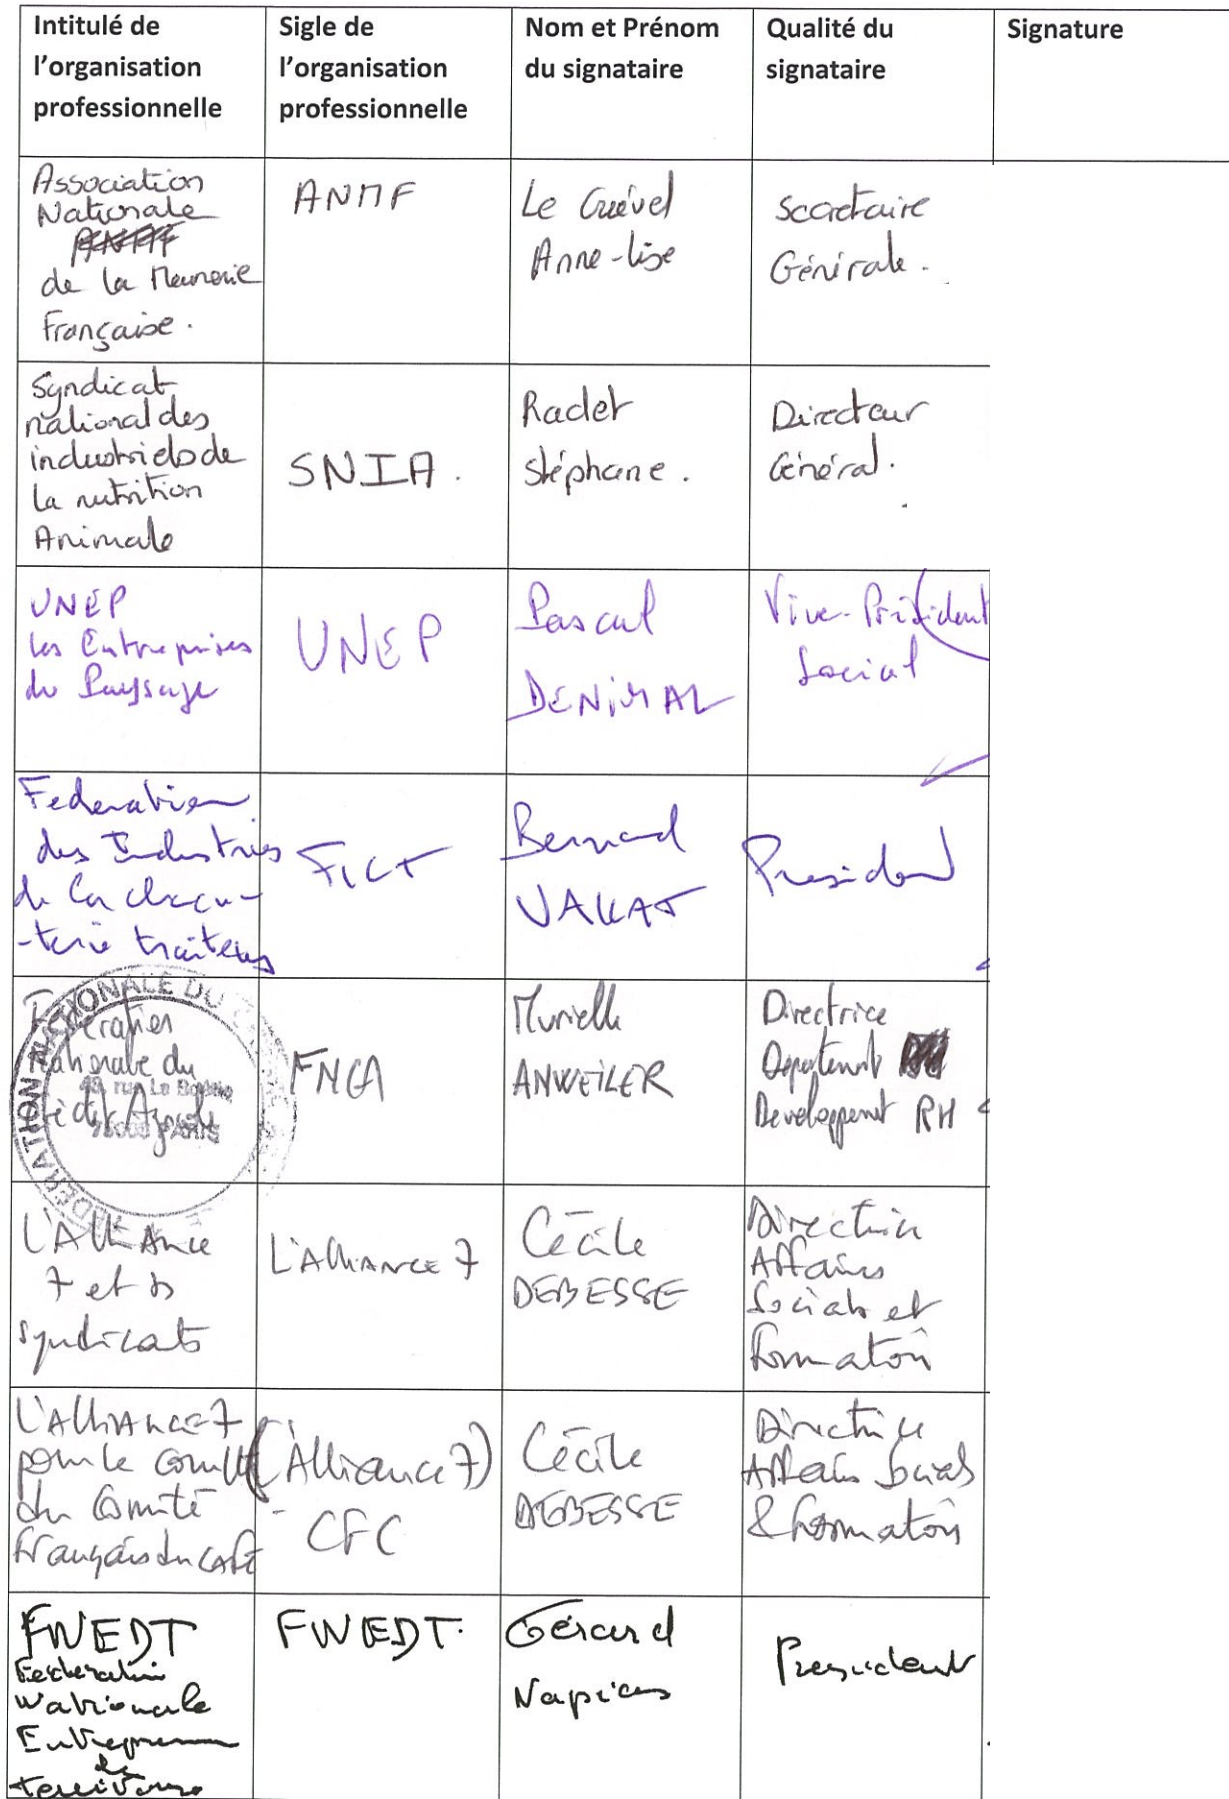 Intitulé de
l’organisation
professionnelle
Sigle de
l’organisation
professionnelle
Nom et Prénom
du signataire
Qualité du
signataire
Signature
Association
Nationale
de la Meunerie
Française.
ANMF
Le Guével
Anne-Lise
Secrétaire
Générale.
Syndicat
national des
industriels de
la nutrition
Animale
SNIA.
Radet
Stéphane.
Directeur
Général.
UNEP
les Entreprises
du Paysage
UNEP
Pascal
DENIMAL
Vice-Président
Social
Federation
des Industries
de la charcu-
-terie traiteurs
FICT
Bernard
VALLAT
President
Fédération
Nationale du
Crédit Agricole
FÉDÉRATION NATIONALE DU
48, rue La Boétie
75008 PARIS
FNCA
Murielle
ANWEILER
Directrice
Departement
Developpement RH
L'Alliance
7 et ses
syndicats
L'Alliance 7
Cécile
DEBESSE
Directrice
Affaires
Sociales et
formation
L'Alliance 7
pour le compte
du Comité
français du café
(Alliance 7)
- CFC
Cécile
DEBESSE
Directrice
Affaires Sociales
& Formation
FNEDT
Federation
Nationale
Entrepreneurs
des
territoires
FNEDT.
Gérard
Napias
President